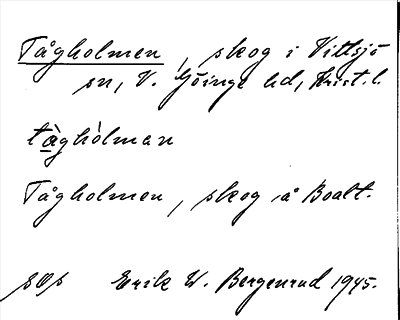 Tågholmen, skog i Vittsjö
sn, V. Göinge hd, Krist. l.
tàghòlman
Tågholmen, skog å Boalt.
Erik W. Bergenrud 1945.